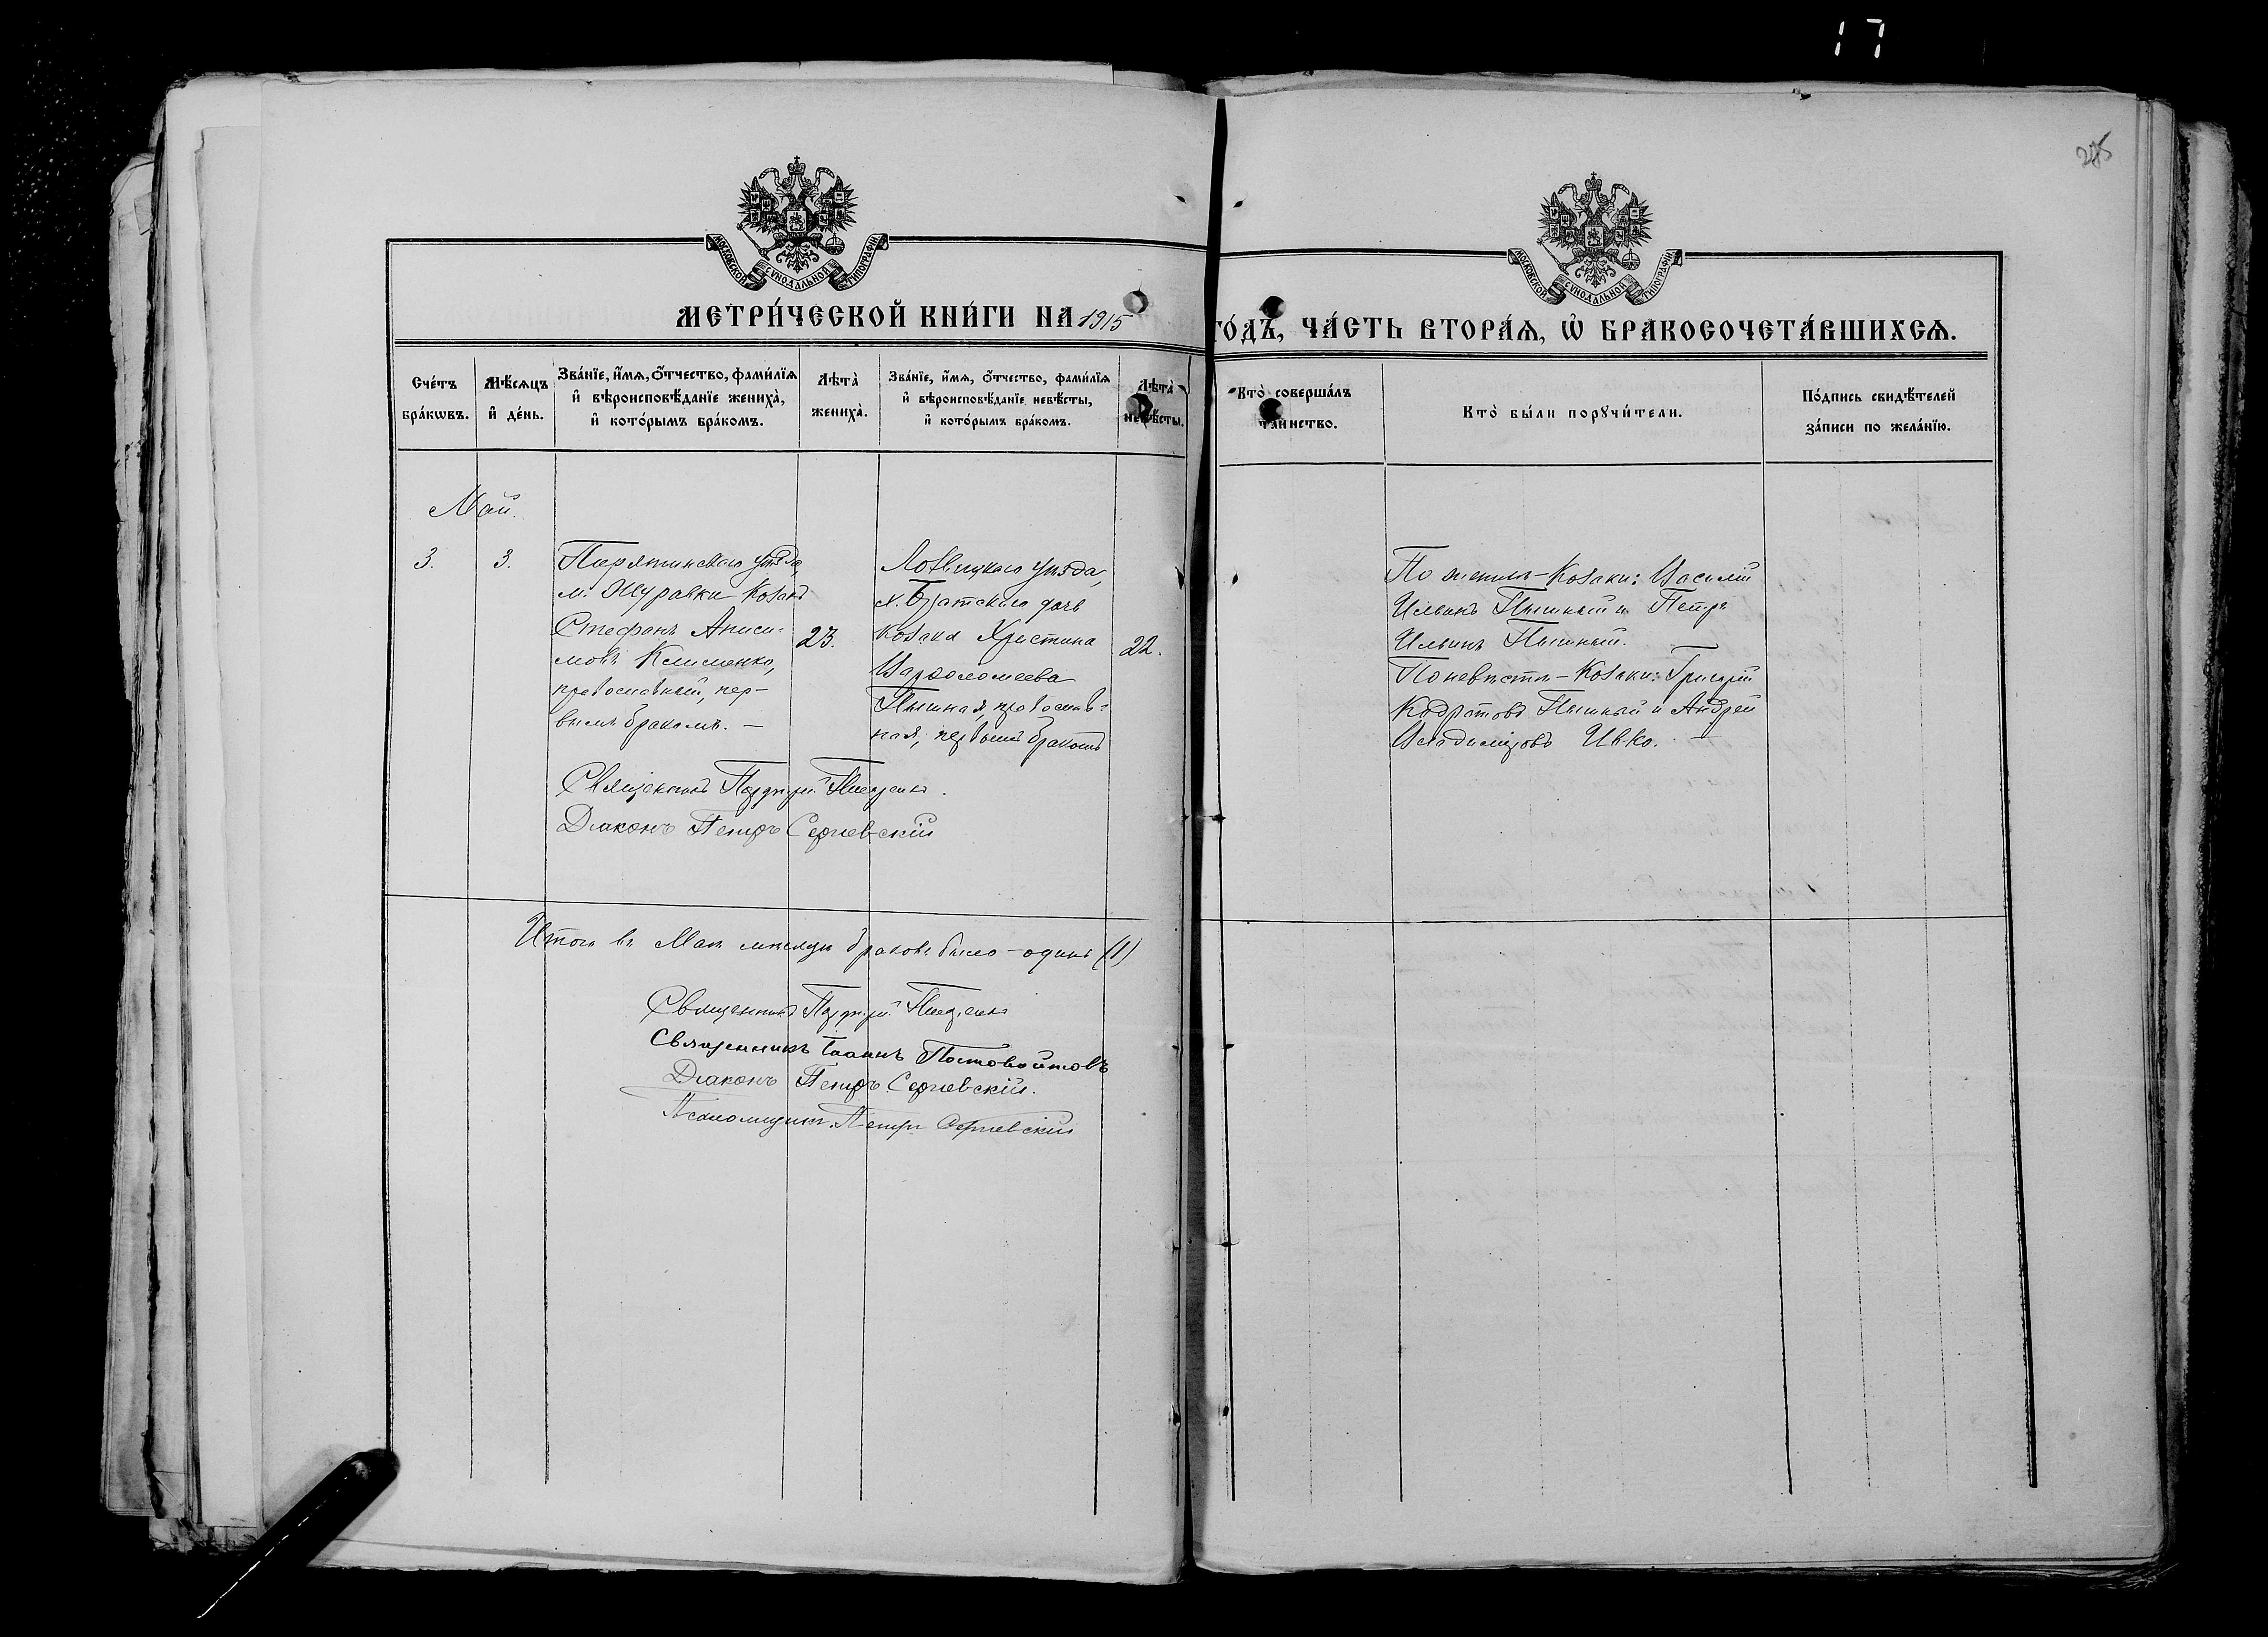 17
285
МОСКОВСКОЙ СѴНОДАЛЬНОЙ ТИПОГРАФІИ
МОСКОВСКОЙ СѴНОДАЛЬНОЙ ТИПОГРАФІИ
МЕТРИ́ЧЕСКОЙ КНИ́ГИ НА 1915 ГО́ДЪ, ЧА́СТЬ ВТОРА́Я, Ѿ БРАКОСОЧЕТА́ВШИХСЯ.
Сче́тъ бра́кωвъ.
Мѣ́сяцъ и҆ де́нь.
Зва́нїе, и҆́мя, ѻ҆́тчество, фами́лїя и҆ вѣроисповѣ́данїе жениха̀, и҆ кото́рымъ бра́комъ.
Лѣта̀ жениха̀.
Зва́нїе, и҆́мя, ѻ҆́тчество, фами́лїя и҆ вѣроисповѣ́данїе невѣ́сты, и҆ кото́рымъ бра́комъ.
Лѣта̀ невѣ́сты.
Кто̀ соверша́лъ та́инство.
Кто̀ бы́ли порꙋчи́тели.
По́дпись свидѣ́телей за́писи по жела́нїю.
Май.
3.
3.
Пирятинскаго уѣзда,
м. Журавки козакъ
Стефанъ Аниси-
мовъ Клименко,
православный, пер-
вымъ бракомъ. —
23.
Лохвицкаго уѣзда,
х. Братскаго дочь
козака Христина
Варѳоломеева
Пышная, православ-
ная, первымъ бракомъ
22.
По женихѣ – козаки: Василій
Ильинъ Пышный и Петръ
Ильинъ Пышный. —
По невѣстѣ – козаки: Григорій
Кодратовъ Пышный и Андрей
Владиміровъ Ивко. —
Священникъ Порфирій
Діаконъ Петръ Сергіевскій
Итого въ Маѣ мѣсяцѣ браковъ было – одинъ (1)
Священникъ Порфирій
Священникъ Іоаннъ Постовойтовъ
Діаконъ Петръ Сергіевскій.
Псаломщикъ Петръ Сергіевскій